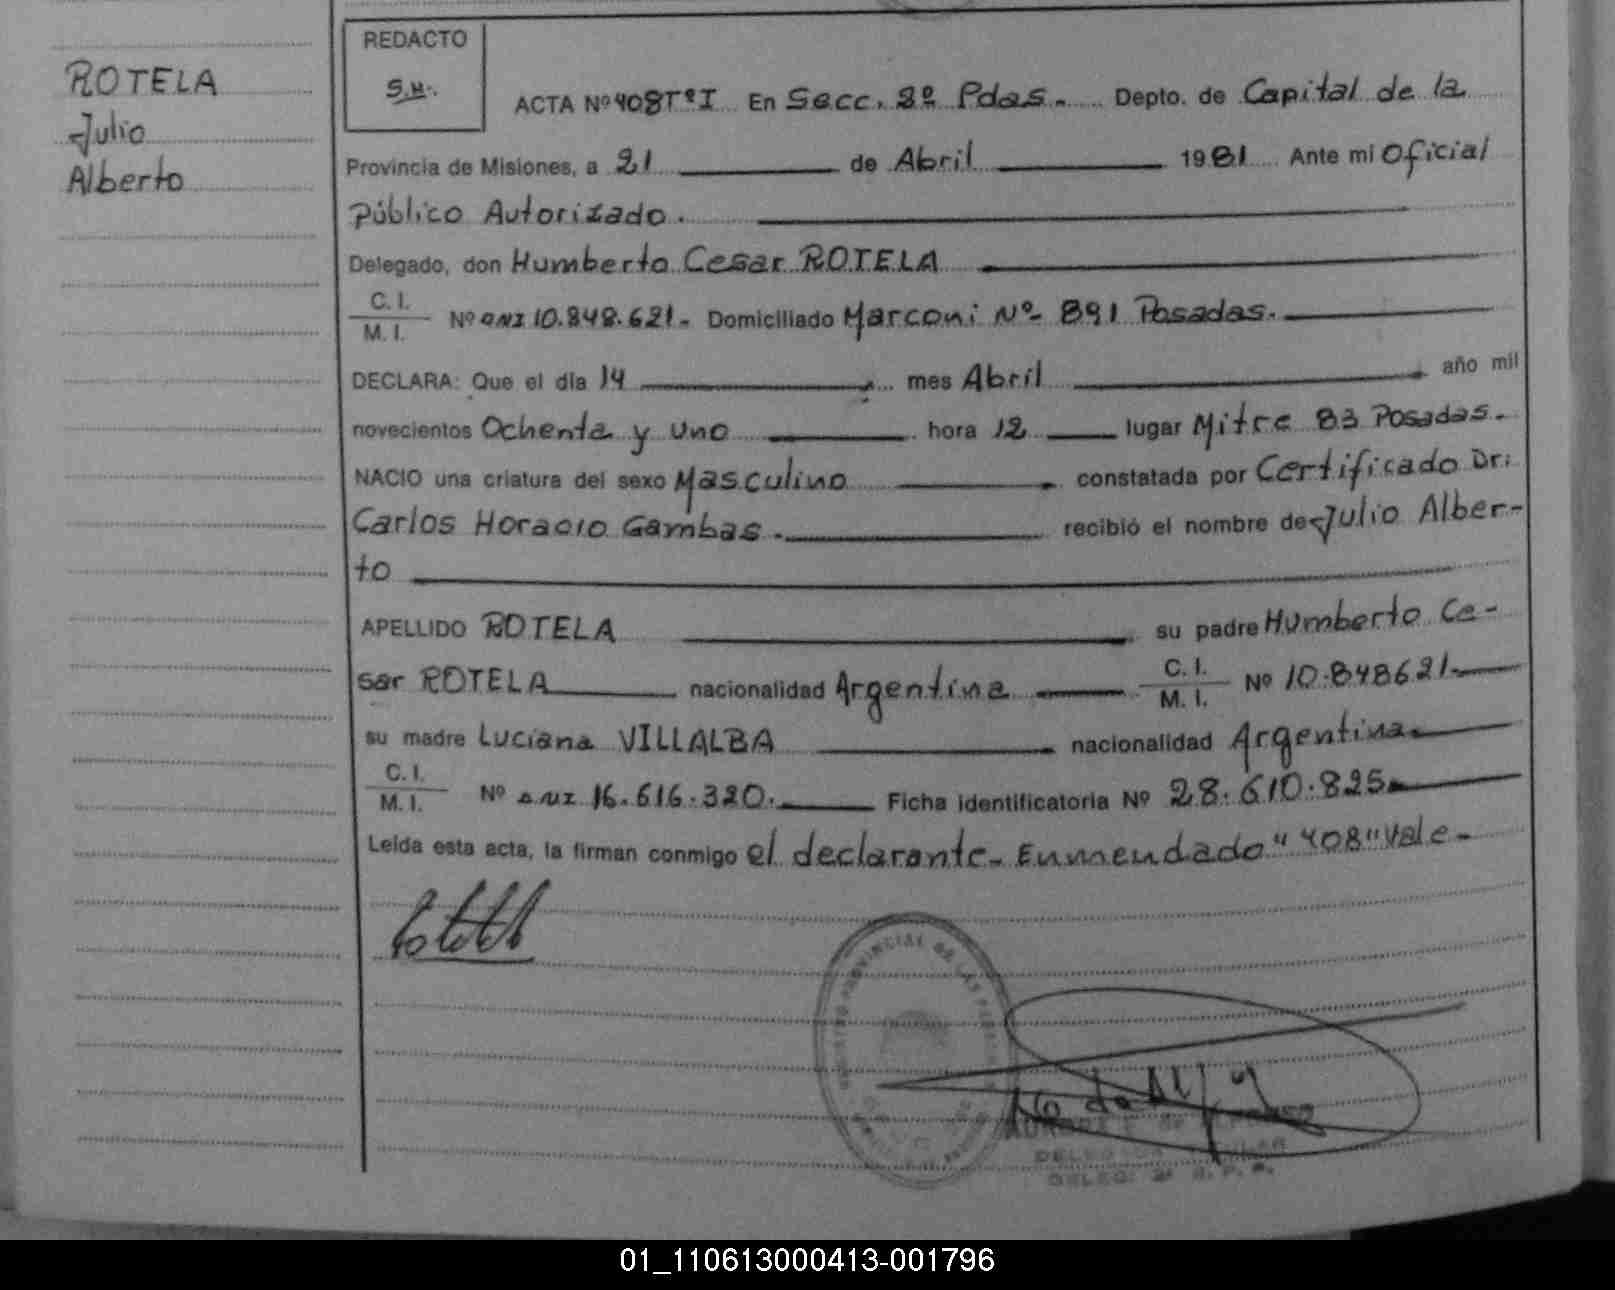 ROTELA
Julio
Alberto
REDACTO
S.H.
ACTA Nº 408 Tº I En Secc. 2º Pdas. Depto. de Capital de la
Provincia de Misiones, a 21 de Abril 1981 Ante mi Oficial
Público Autorizado.
Delegado, don Humberto Cesar ROTELA
C. I.
M. I.
Nº DNI 10.848.621. Domiciliado Marconi Nº 891 Posadas.
DECLARA: Que el día 14 mes Abril año mil
novecientos Ochenta y uno hora 12 lugar Mitre 83 Posadas.
NACIO una criatura del sexo Masculino constatada por Certificado Dr:
Carlos Horacio Gambas. recibió el nombre de Julio Alber-
to
APELLIDO ROTELA su padre Humberto Ce-
sar ROTELA nacionalidad Argentina C. I. M. I. Nº 10.848621.
su madre Luciana VILLALBA nacionalidad Argentina.
C. I.
M. I.
Nº DNI 16.616.320. Ficha identificatoria Nº 28.610.825
Leída esta acta, la firman conmigo el declarante. Enmendado "408" Vale.
01_110613000413-001796